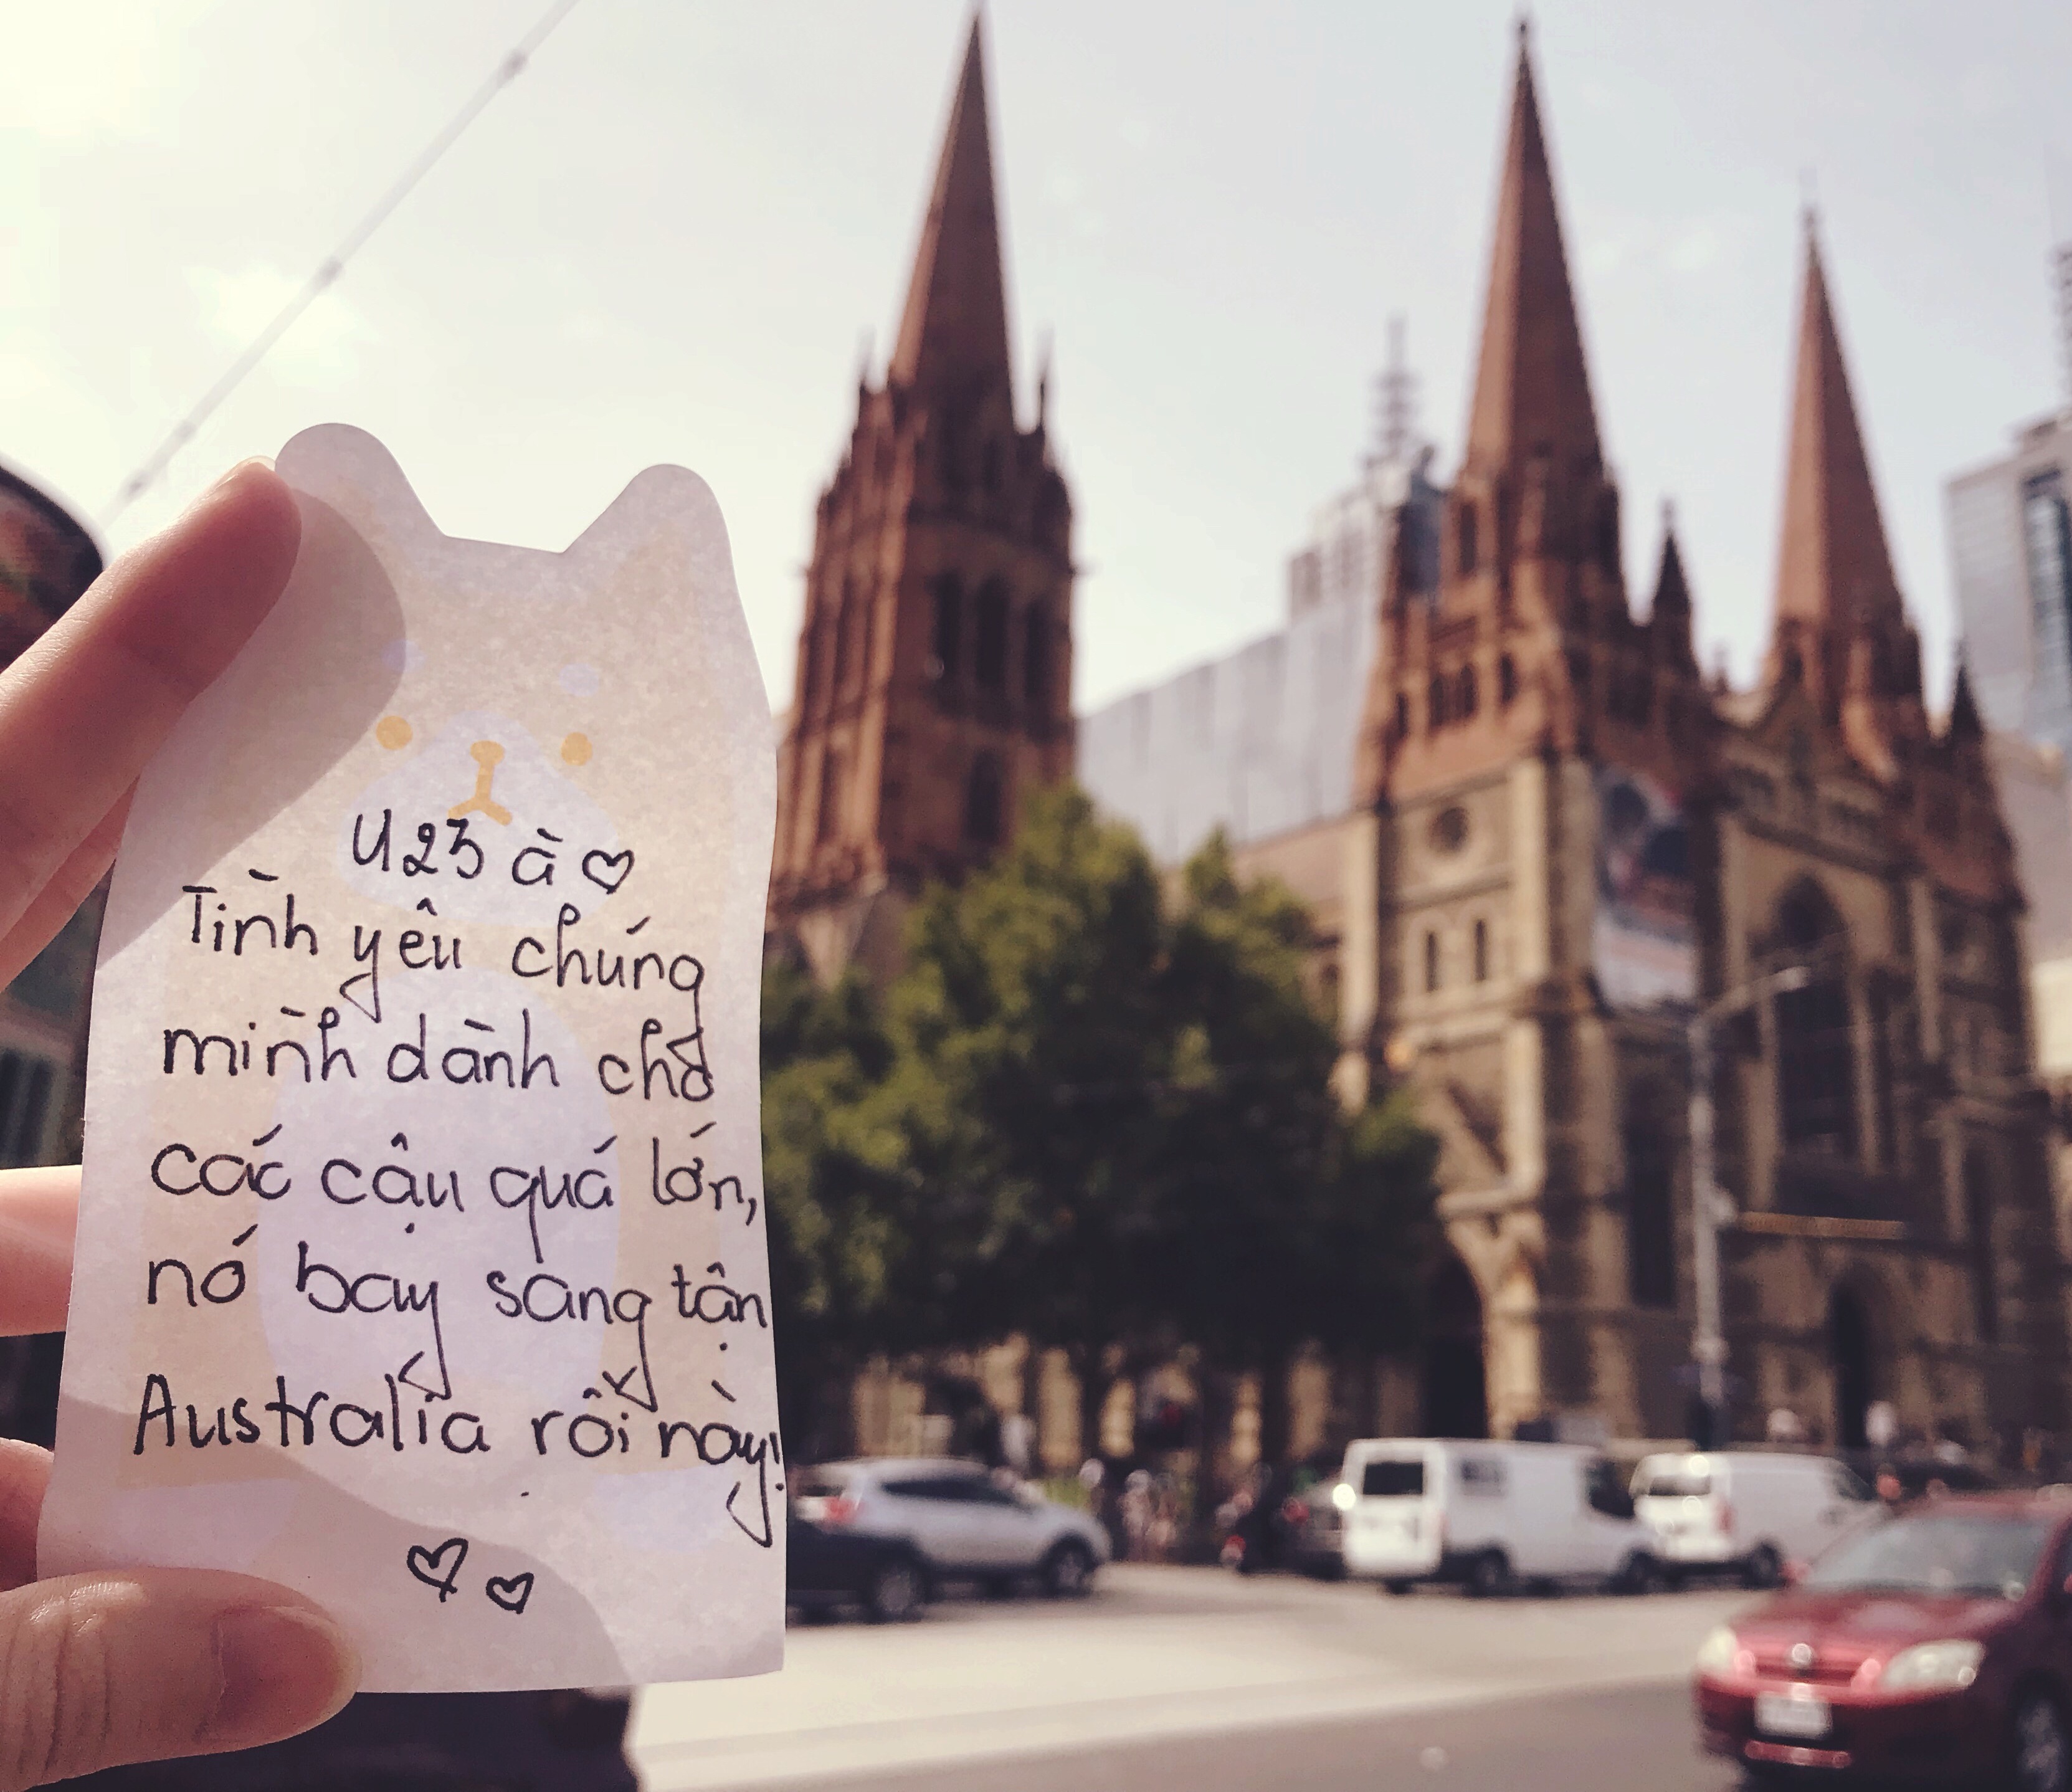 U23 à ♡
Tình yêu chúng
mình dành cho
các cậu quá lớn,
nó bay sang tận
Australia rồi này!
♡ ♡